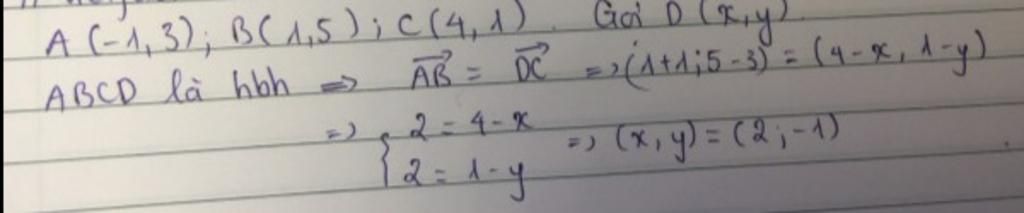 A(-1,3); B(1,5); C(4,1). Gọi D(x,y)
ABCD là hbh => \overrightarrow{AB} = \overrightarrow{DC} => (1+1; 5-3) = (4-x, 1-y)
=> { 2 = 4-x
2 = 1-y => (x,y) = (2;-1)